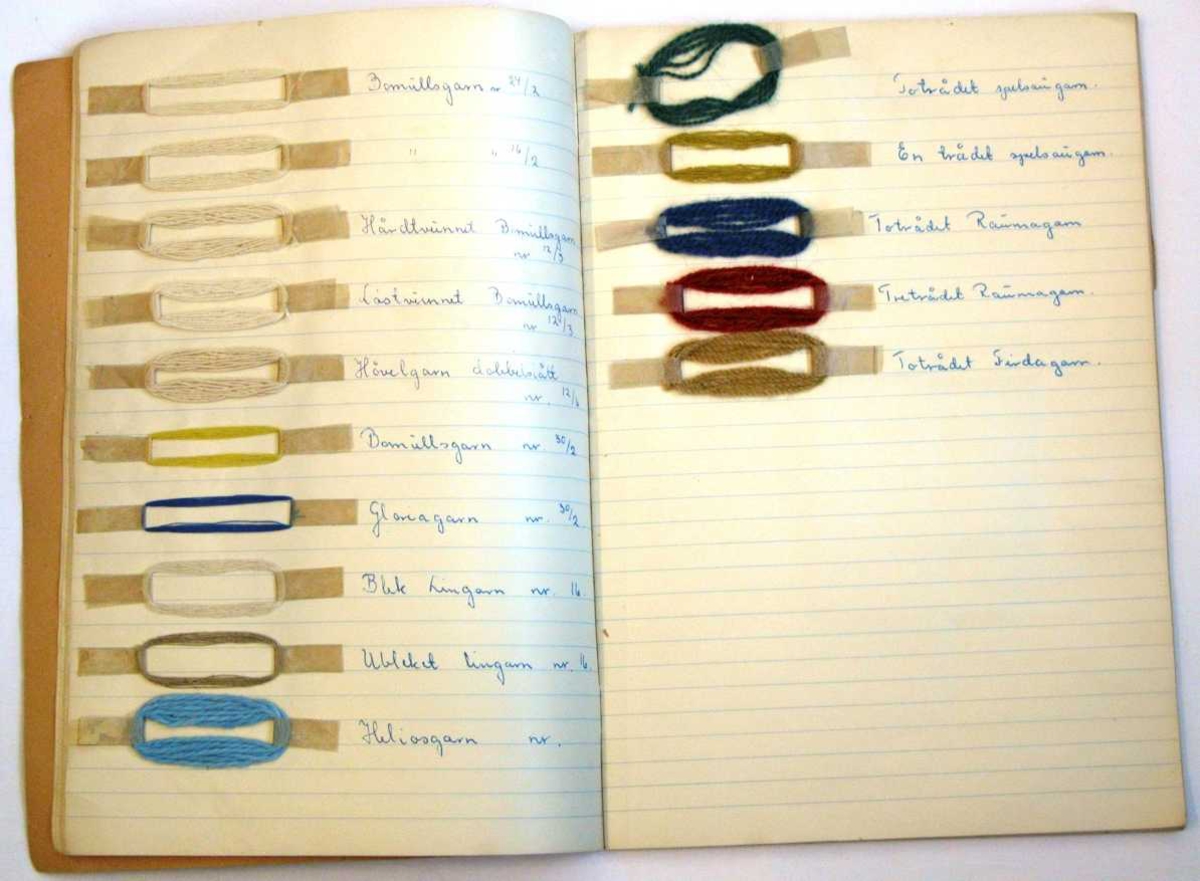 Bomullsgarn nr 24/2
" " 16/2
Hårdtvunnet Bomullsgarn
nr 12/3
Løstvunnet Bomullsgarn
nr 12/3
Hövelgarn
nr. 12/6
Bomullsgarn nr 30/2
Gloriagarn nr. 30/2
Blek Lingarn nr. 16
Ubleket Lingarn nr. 16
Heliosgarn nr.
Totrådet spelsaugarn.
En trådet spelsaugarn.
Totrådet Raumagarn
Tretrådet Raumagarn.
Totrådet Firdagarn.